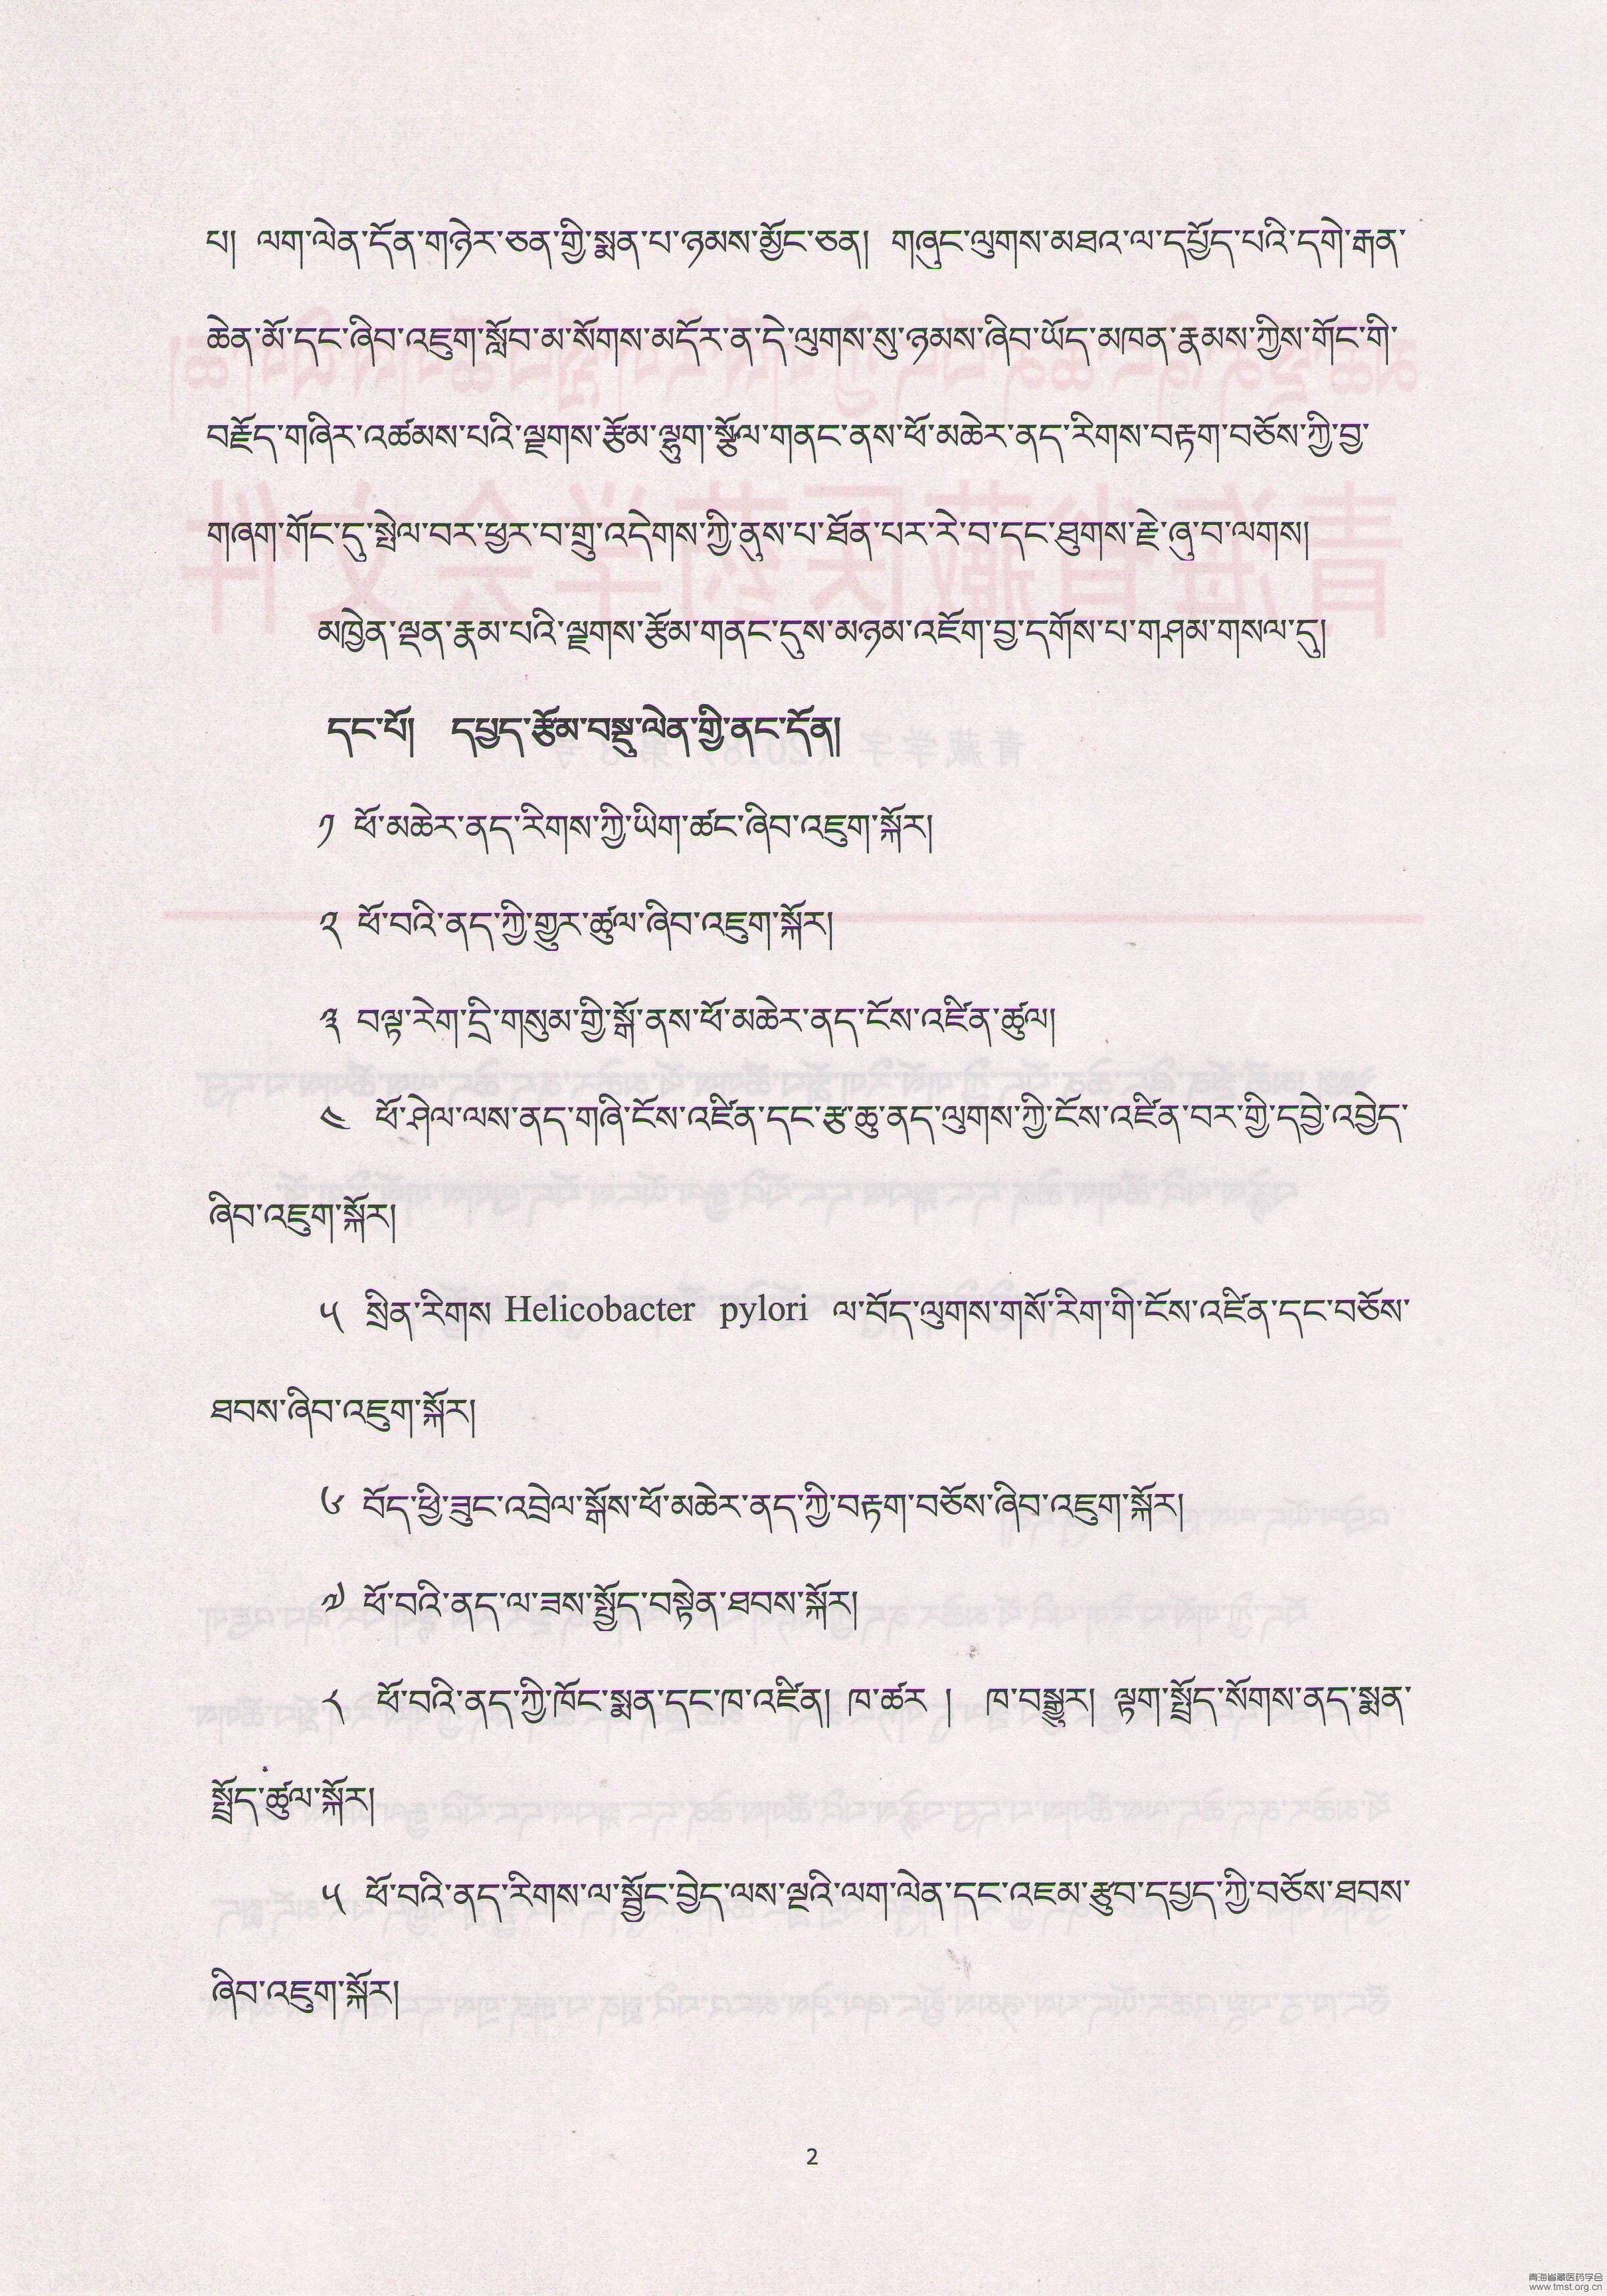 པ། ལག་ལེན་དོན་གཉེར་ཅན་གྱི་སྨན་པ་ཉམས་མྱོང་ཅན། གཞུང་ལུགས་མཐའ་ལ་དཔྱོད་པའི་དགེ་རྒན་
ཆེན་མོ་དང་ཞིབ་འཇུག་སློབ་མ་སོགས་མདོར་ན་དེ་ལུགས་སུ་ཉམས་ཞིབ་ཡོད་མཁན་རྣམས་ཀྱིས་གོང་གི་
བརྗོད་གཞིར་འཚམས་པའི་ལྗགས་རྩོམ་ལྷུག་སྩོལ་གནང་ནས་ཕོ་མཆེར་ནད་རིགས་བརྟག་བཅོས་ཀྱི་བྱ་
གཞག་གོང་དུ་སྤེལ་བར་ཕྱར་བ་གྲུ་འདེགས་ཀྱི་ནུས་པ་ཐོན་པར་རེ་བ་དང་ཐུགས་རྗེ་ཞུ་བ་ལགས།
མཁྱེན་ལྡན་རྣམ་པའི་ལྗགས་རྩོམ་གནང་དུས་མཉམ་འཇོག་བྱ་དགོས་པ་གཤམ་གསལ་དུ།
དང་པོ། དཔྱད་རྩོམ་བསྡུ་ལེན་གྱི་ནང་དོན།
༡ ཕོ་མཆེར་ནད་རིགས་ཀྱི་ཡིག་ཚང་ཞིབ་འཇུག་སྐོར།
༢ ཕོ་བའི་ནད་ཀྱི་གྱུར་ཚུལ་ཞིབ་འཇུག་སྐོར།
༣ བལྟ་རེག་དྲི་གསུམ་གྱི་སྒོ་ནས་ཕོ་མཆེར་ནད་ངོས་འཛིན་ཚུལ།
༤ ཕོ་ཤེལ་ལས་ནད་གཞི་ངོས་འཛིན་དང་རྩ་ཆུ་ནད་ལུགས་ཀྱི་ངོས་འཛིན་བར་གྱི་དབྱེ་འབྱེད་
ཞིབ་འཇུག་སྐོར།
༥ སྲིན་རིགས Helicobacter pylori ལ་བོད་ལུགས་གསོ་རིག་གི་ངོས་འཛིན་དང་བཅོས་
ཐབས་ཞིབ་འཇུག་སྐོར།
༦ བོད་ཕྱི་ཟུང་འབྲེལ་སྒོས་ཕོ་མཆེར་ནད་ཀྱི་བརྟག་བཅོས་ཞིབ་འཇུག་སྐོར།
༧ ཕོ་བའི་ནད་ལ་ཟས་སྤྱོད་བསྟེན་ཐབས་སྐོར།
༨ ཕོ་བའི་ནད་ཀྱི་ཁོང་སྨན་དང་ཁ་འཛིན། ཁ་ཚར ། ཁ་བསྒྱུར། ལྟག་སྤྲོད་སོགས་ནད་སྨན་
སྤྲོད་ཚུལ་སྐོར།
༥ ཕོ་བའི་ནད་རིགས་ལ་སྦྱོང་བྱེད་ལས་ལྔའི་ལག་ལེན་དང་འཇམ་རྩུབ་དཔྱད་ཀྱི་བཅོས་ཐབས་
ཞིབ་འཇུག་སྐོར།
2
青海省藏医药学会
www.tmst.org.cn